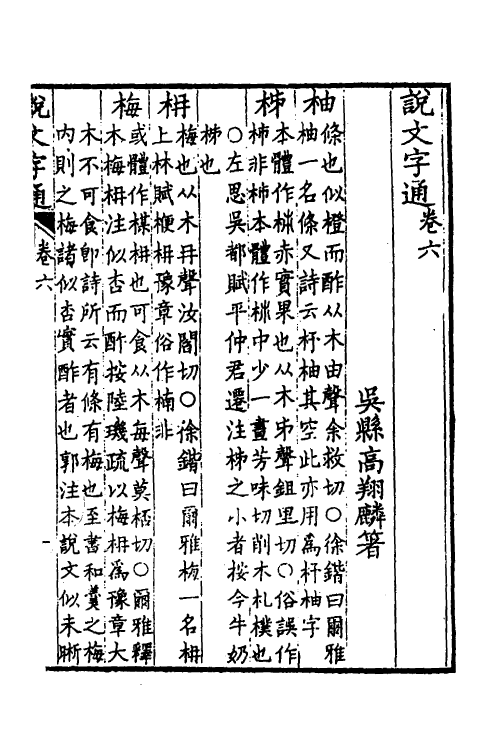 說文字通卷六
吳縣高翔麟箸
柚
條也似橙而酢从木由聲余救切○徐鍇曰爾雅
柚一名條又詩云杼柚其空此亦用爲杼柚字
柹
本體作𣐈赤實果也从木𠂔聲鉏里切○俗誤作
柿非柿本體作𣏟中少一畫芳味切削木札樸也
○左思吳都賦平仲君遷注柹之小者按今牛奶
柹也
枏
梅也从木冄聲汝閻切○徐鍇曰爾雅梅一名枏
上林賦楩枏豫章俗作楠非
梅
或體作楳枏也可食从木每聲莫桮切○爾雅釋
本梅枏注似杏而酢按陸璣疏以梅枏爲豫章大
木不可食卽詩所云有條有梅也至書和羹之梅
內則之梅諸似杏實酢者也郭注本說文似未晰
說文字通
卷六
一